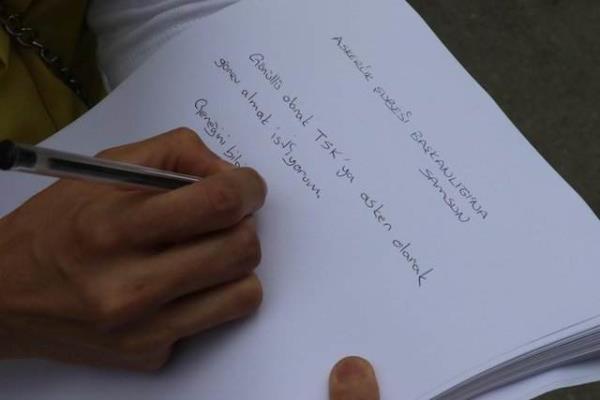 ASKERLİK ŞUBESİ BAŞKANLIĞI'NA
SAMSUN
Gönüllü olarak TSK'ya asker olarak
görev almak istiyorum.
Gereğini bilg